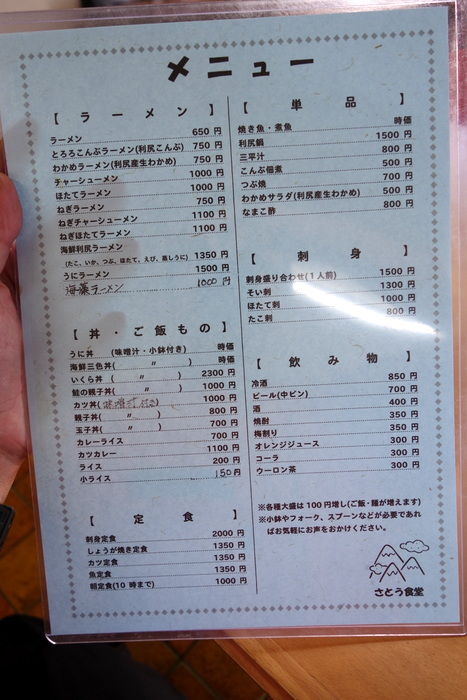 メニュー
【ラーメン】
ラーメン 650 円
とろろこんぶラーメン(利尻こんぶ) 750 円
わかめラーメン(利尻産生わかめ) 750 円
チャーシューメン 1000 円
ほたてラーメン 1000 円
ねぎラーメン 750 円
ねぎチャーシューメン 1100 円
ねぎほたてラーメン 1100 円
海鮮利尻ラーメン
(たこ、いか、つぶ、ほたて、えび、蒸しうに) 1350 円
うにラーメン 1500 円
海藻ラーメン 1000 円
【丼・ご飯もの】
うに丼 (味噌汁・小鉢付き) 時価
海鮮三色丼( 〃 ) 時価
いくら丼 ( 〃 ) 2300 円
鮭の親子丼( 〃 ) 1000 円
カツ丼(味噌汁付き) 1000 円
親子丼( 〃 ) 800 円
玉子丼( 〃 ) 700 円
カレーライス 700 円
カツカレー 1100 円
ライス 200 円
小ライス 150 円
【定食】
刺身定食 2000 円
しょうが焼き定食 1350 円
カツ定食 1350 円
魚定食 1350 円
朝定食(10 時まで) 1000 円
【単品】
焼き魚・煮魚 時価
利尻鍋 1500 円
三平汁 800 円
こんぶ佃煮 500 円
つぶ焼 700 円
わかめサラダ(利尻産生わかめ) 500 円
なまこ酢 800 円
【刺身】
刺身盛り合わせ(1人前) 1500 円
そい刺 1300 円
ほたて刺 1000 円
たこ刺 800 円
【飲み物】
冷酒 850 円
ビール(中ビン) 700 円
酒 400 円
焼酎 350 円
梅割り 350 円
オレンジジュース 300 円
コーラ 300 円
ウーロン茶 300 円
※各種大盛は 100 円増し(ご飯・麺が増えます)
※小鉢やフォーク、スプーンなどが必要であれ
ばお気軽にお声をおかけください。
さとう食堂